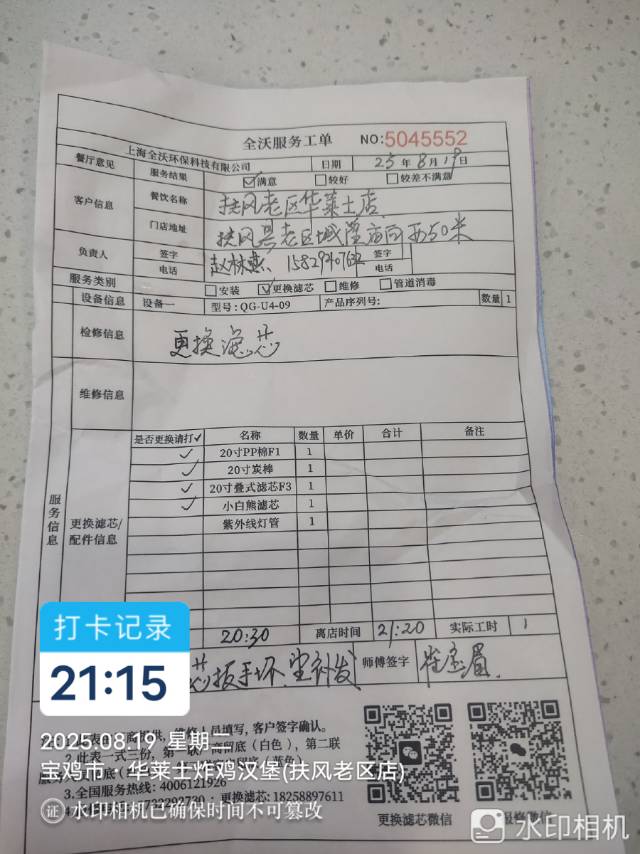 全沃服务工单 NO:5045552
上海全沃环保科技有限公司 日期 25年8月19日
餐厅意见 服务结果 ☑满意 □较好 □较差不满意
客户信息 餐饮名称 扶风老区华莱士店
门店地址 扶风县老区城隍庙向西50米
负责人 签字 签字
电话 电话
服务类别 □安装 ☑更换滤芯 □维修 □管道消毒
设备信息 设备一 型号: QG-U4-09 产品序列号: 数量 1
检修信息 更换滤芯
维修信息
服务信息
更换滤芯/配件信息
是否更换请打✓ 名称 数量 单价 合计 备注
✓ 20寸PP棉F1 1
✓ 20寸炭棒 1
✓ 20寸叠式滤芯F3 1
✓ 小白熊滤芯 1
紫外线灯管 1
20:30 离店时间 21:20 实际工时 1
芯扳手坏 师傅签字
打卡记录
21:15
客户签字确认。
2025.08.19 星期二
2.此表一式三份, 商留底(白色), 第二联
宝鸡市·华莱士炸鸡汉堡(扶风老区店)
3.全国服务热线: 4006121926
更换滤芯: 18258897611
证 水印相机已确保时间不可篡改
更换滤芯微信
水印相机